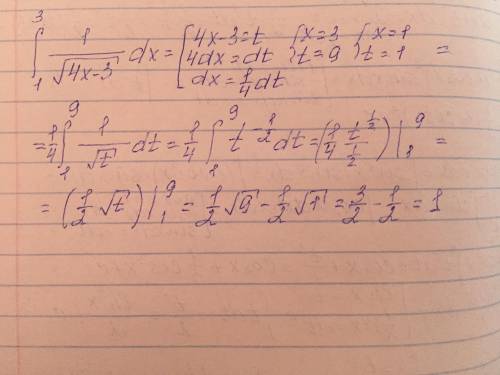 ∫₁³ 1/√(4x-3) dx = [4x-3=t {x=3 {x=1
4dx=dt t=9 t=1 =
dx=1/4 dt
= 1/4 ∫₁⁹ 1/√t dt = 1/4 ∫₁⁹ t^(-1/2) dt = (1/4 t^(1/2)/(1/2)) |₁⁹ =
= (1/2 √t) |₁⁹ = 1/2 √9 - 1/2 √1 = 3/2 - 1/2 = 1